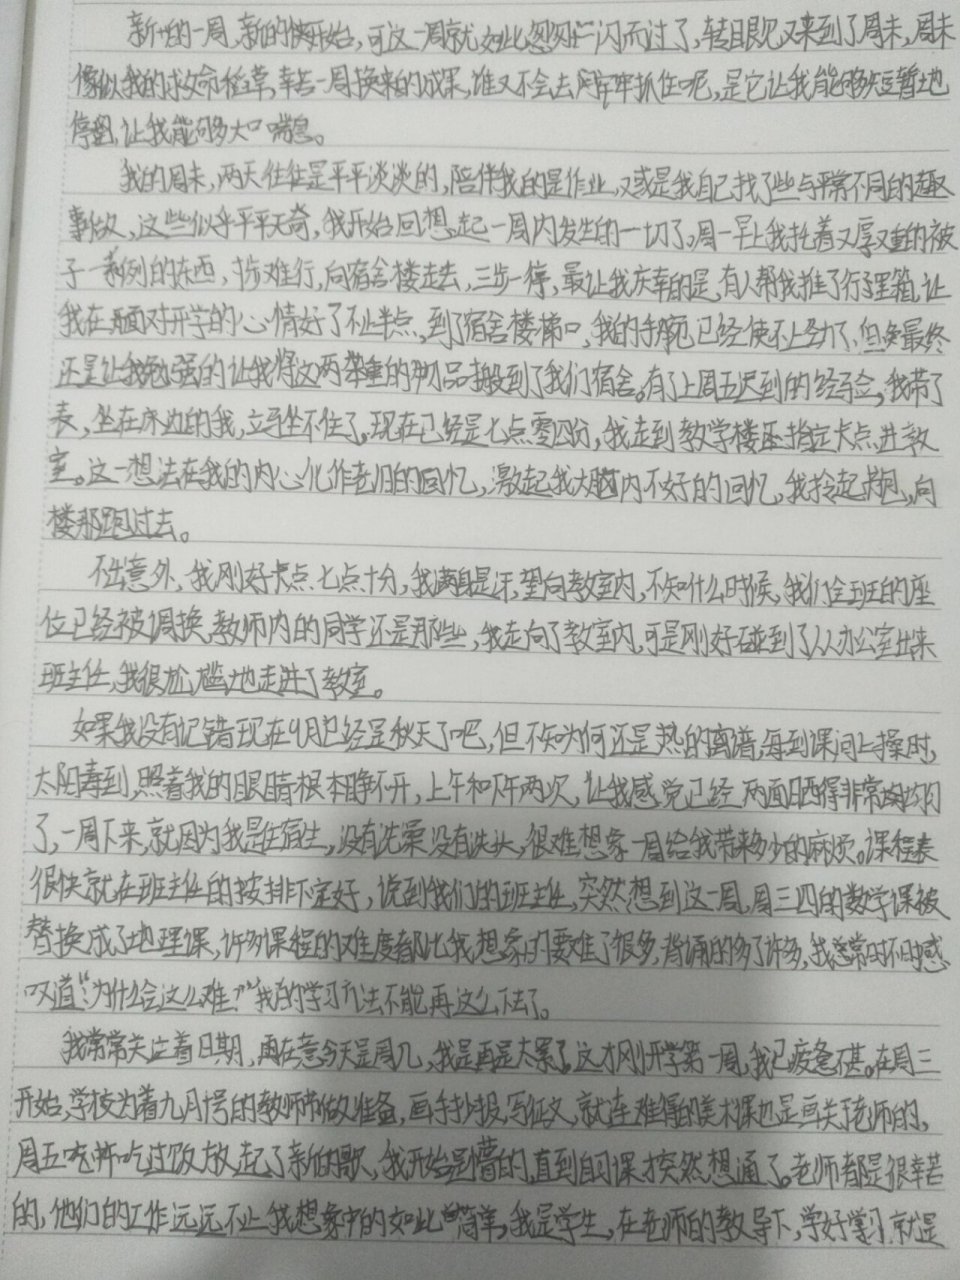 新的一周,新的快开始,可这一周就如此匆匆一闪而过了,转眼又来到了周末,周末
像似我的救命稻草,辛苦一周换来的成果,谁又不会去牢牢抓住呢,是它让我能够短暂地
停留,让我能够大口喘息。
我的周末,两天往往是平平淡淡的,陪伴我的是作业,又或是我自己找了些与平常不同的趣
事做,这些似乎平平无奇,我开始回想起一周内发生的一切了。周一早上我托着又厚又重的被
子一系列的东西,步难行,向宿舍楼走去,三步一停,最让我庆幸的是,有人帮我推了行李箱,让
我在面对开学的心情好了不止半点,到了宿舍楼梯口,我的手腕已经使不上劲了,但最终
还是让我勉强的让我将这两袋重的物品搬到了我们宿舍。有了上周五迟到的经验,我带了
表,坐在床边的我,立马坐不住了,现在已经是七点零四分,我走到教学楼压指定卡点进教
室。这一想法在我的内心化作老旧的回忆,激起我大脑内不好的回忆,我拎起书包,向
楼那跑过去。
不出意外,我刚好卡点七点十分,我满身是汗,望向教室内,不知什么时候,我们全班的座
位已经被调换,教师内的同学还是那些,我走向了教室内,可是刚好碰到了从办公室出来
班主任,我很尴尬地走进了教室。
如果我没有记错现在9月已经是秋天了吧,但不知为何还是热的离谱,每到课间上操时,
太阳毒到,照着我的眼睛根本睁不开,上午和下午两次,让我感觉已经两面晒得非常均匀
了,一周下来,就因为我是住宿生,没有洗澡没有洗头,很难想象一周给我带来多少的麻烦。课程表
很快就在班主任的安排下定好,说到我们的班主任,突然想到这一周,周三四的数学课被
替换成了地理课,许多课程的难度都比我想象的要难了很多,背诵的多了许多,我常时不时感
叹道“为什么会这么难?”我的学习方法不能再这么下去了。
我常常关注着日期,更在意今天是周几,我是真是太累了,这才刚开学第一周,我已疲惫不堪。在周三
开始,学校为着九月十号的教师节做准备,画手抄报,写征文,就连难得的美术课也是画关于老师的,
周五吃昨吃过饭放起了新的歌,我开始是懵的,直到自习课才突然想通了。老师都是很辛苦
的,他们的工作远远不止我想象中的如此简单,我是学生,在老师的教导下,学好学习就是